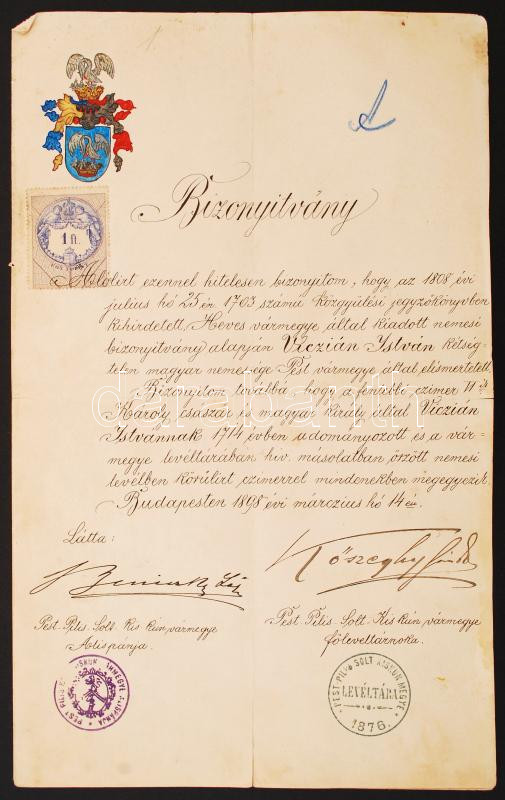 Bizonyitvány
1 ft.
Alólirt ezennel hitelesen bizonyitom, hogy az 1808 évi
julius hó 25 én 1703 számú közgyülési jegyzőkönyvben
kihirdetett, Heves vármegye által kiadott nemesi
bizonyitvány alapján Viczián István kétség-
telen magyar nemessége Pest vármegye által elismertetett.
Bizonyitom továbbá, hogy a fentebbi czimer III ik
Károly császár és magyar király által Viczián
Istvánnak 1714 évben adományozott és a vár-
megye levéltárában hiv. másolatban őrzött nemesi
levélben körülirt czimerrel mindenekben megegyezik.
Budapesten 1898 évi márczius hó 14 én
darabanth.com
Látta:
Kőszeghy Sándor
Pest. Pilis. Solt. Kis kún vármegye
Alispánja.
Pest. Pilis. Solt. Kis kún vármegye
főlevéltárnoka.
PEST PILIS SOLT KISKUN MEGYE
LEVÉLTÁRA
1876.